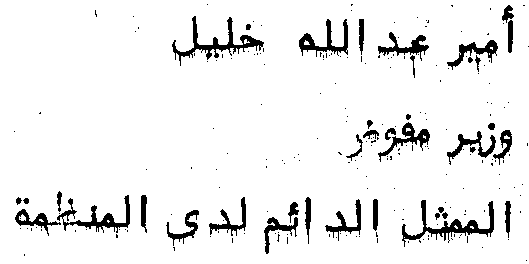 أمير عبدالله خليل
وزير مفوض
الممثل الدائم لدى المنظمة